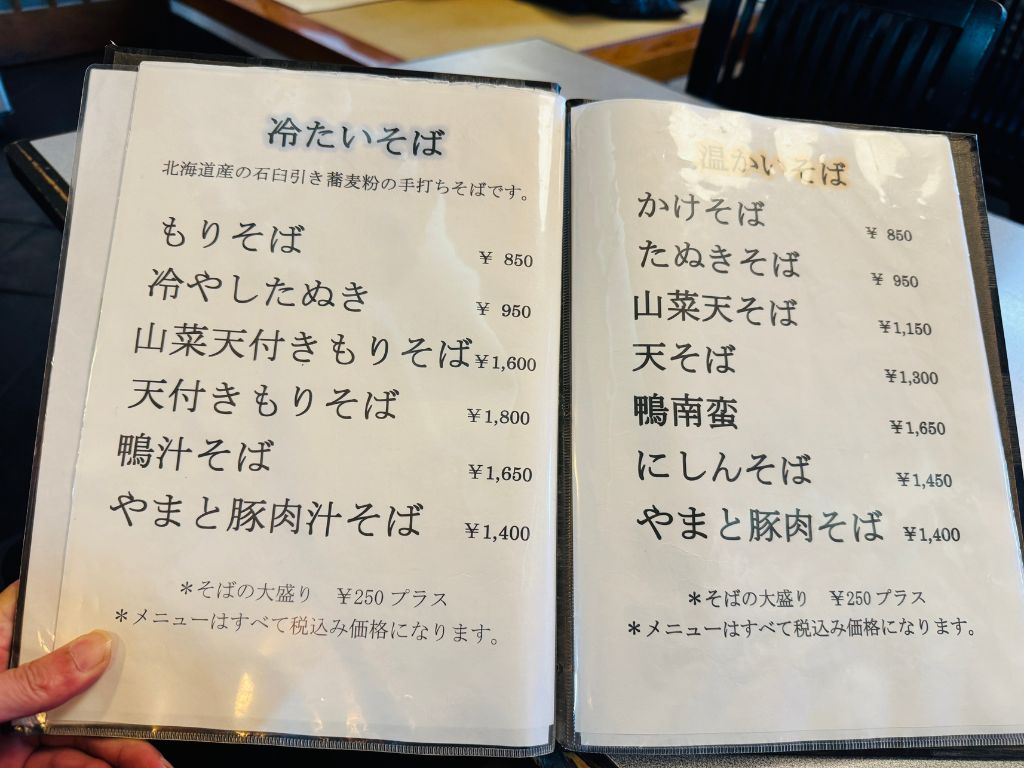 冷たいそば
北海道産の石臼引き蕎麦粉の手打ちそばです。
もりそば ￥ 850
冷やしたぬき ￥ 950
山菜天付きもりそば ￥1,600
天付きもりそば ￥1,800
鴨汁そば ￥1,650
やまと豚肉汁そば ￥1,400
＊そばの大盛り ￥250 プラス
＊メニューはすべて税込み価格になります。
温かいそば
かけそば ￥ 850
たぬきそば ￥ 950
山菜天そば ￥1,150
天そば ￥1,300
鴨南蛮 ￥1,650
にしんそば ￥1,450
やまと豚肉そば ￥1,400
＊そばの大盛り ￥250 プラス
＊メニューはすべて税込み価格になります。